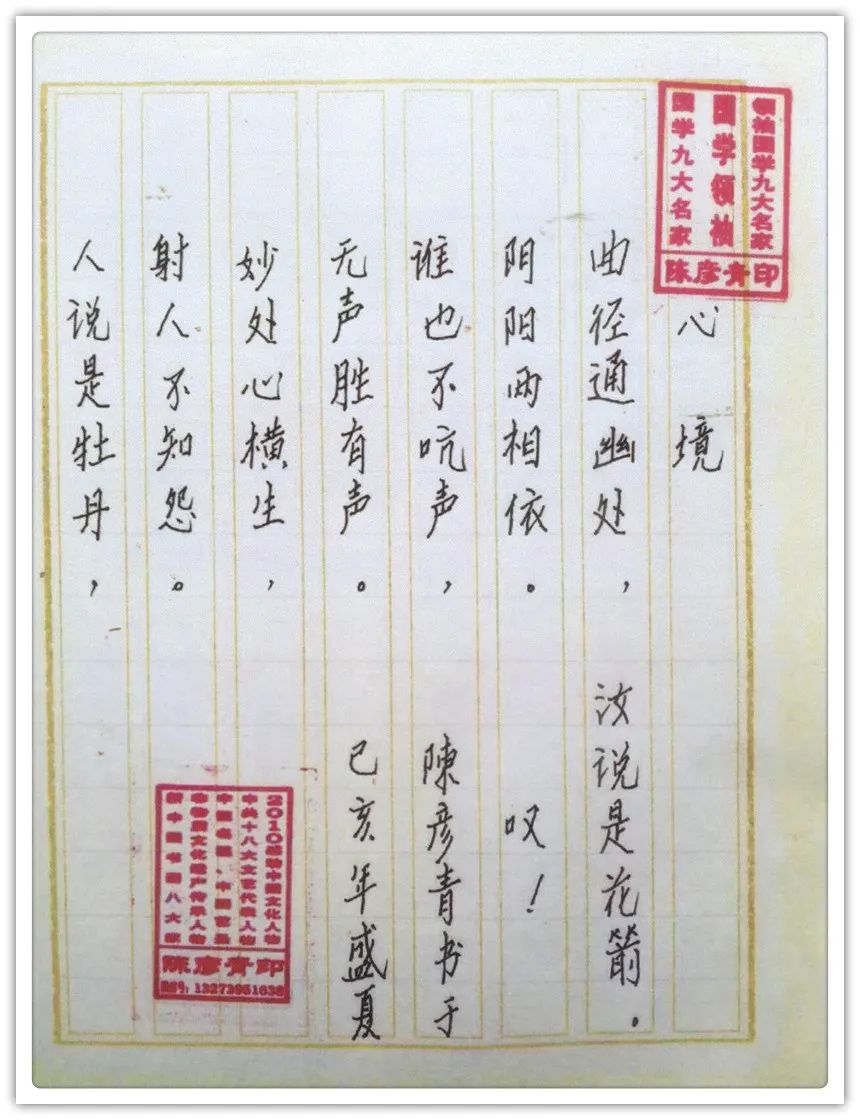 领袖国学九大名家
国学领袖
国学九大名家
陈彦青印
心境
曲径通幽处，
阴阳两相依。
谁也不吭声，
无声胜有声。
妙处心横生，
射人不知怨。
人说是牡丹，
汝说是花箭。
叹！
陳彦青书于
己亥年盛夏
2010感动中国文化人物
中共十八大文艺代表人物
非物质文化遗产传承人物
新中国书画八大家
陈彦青印